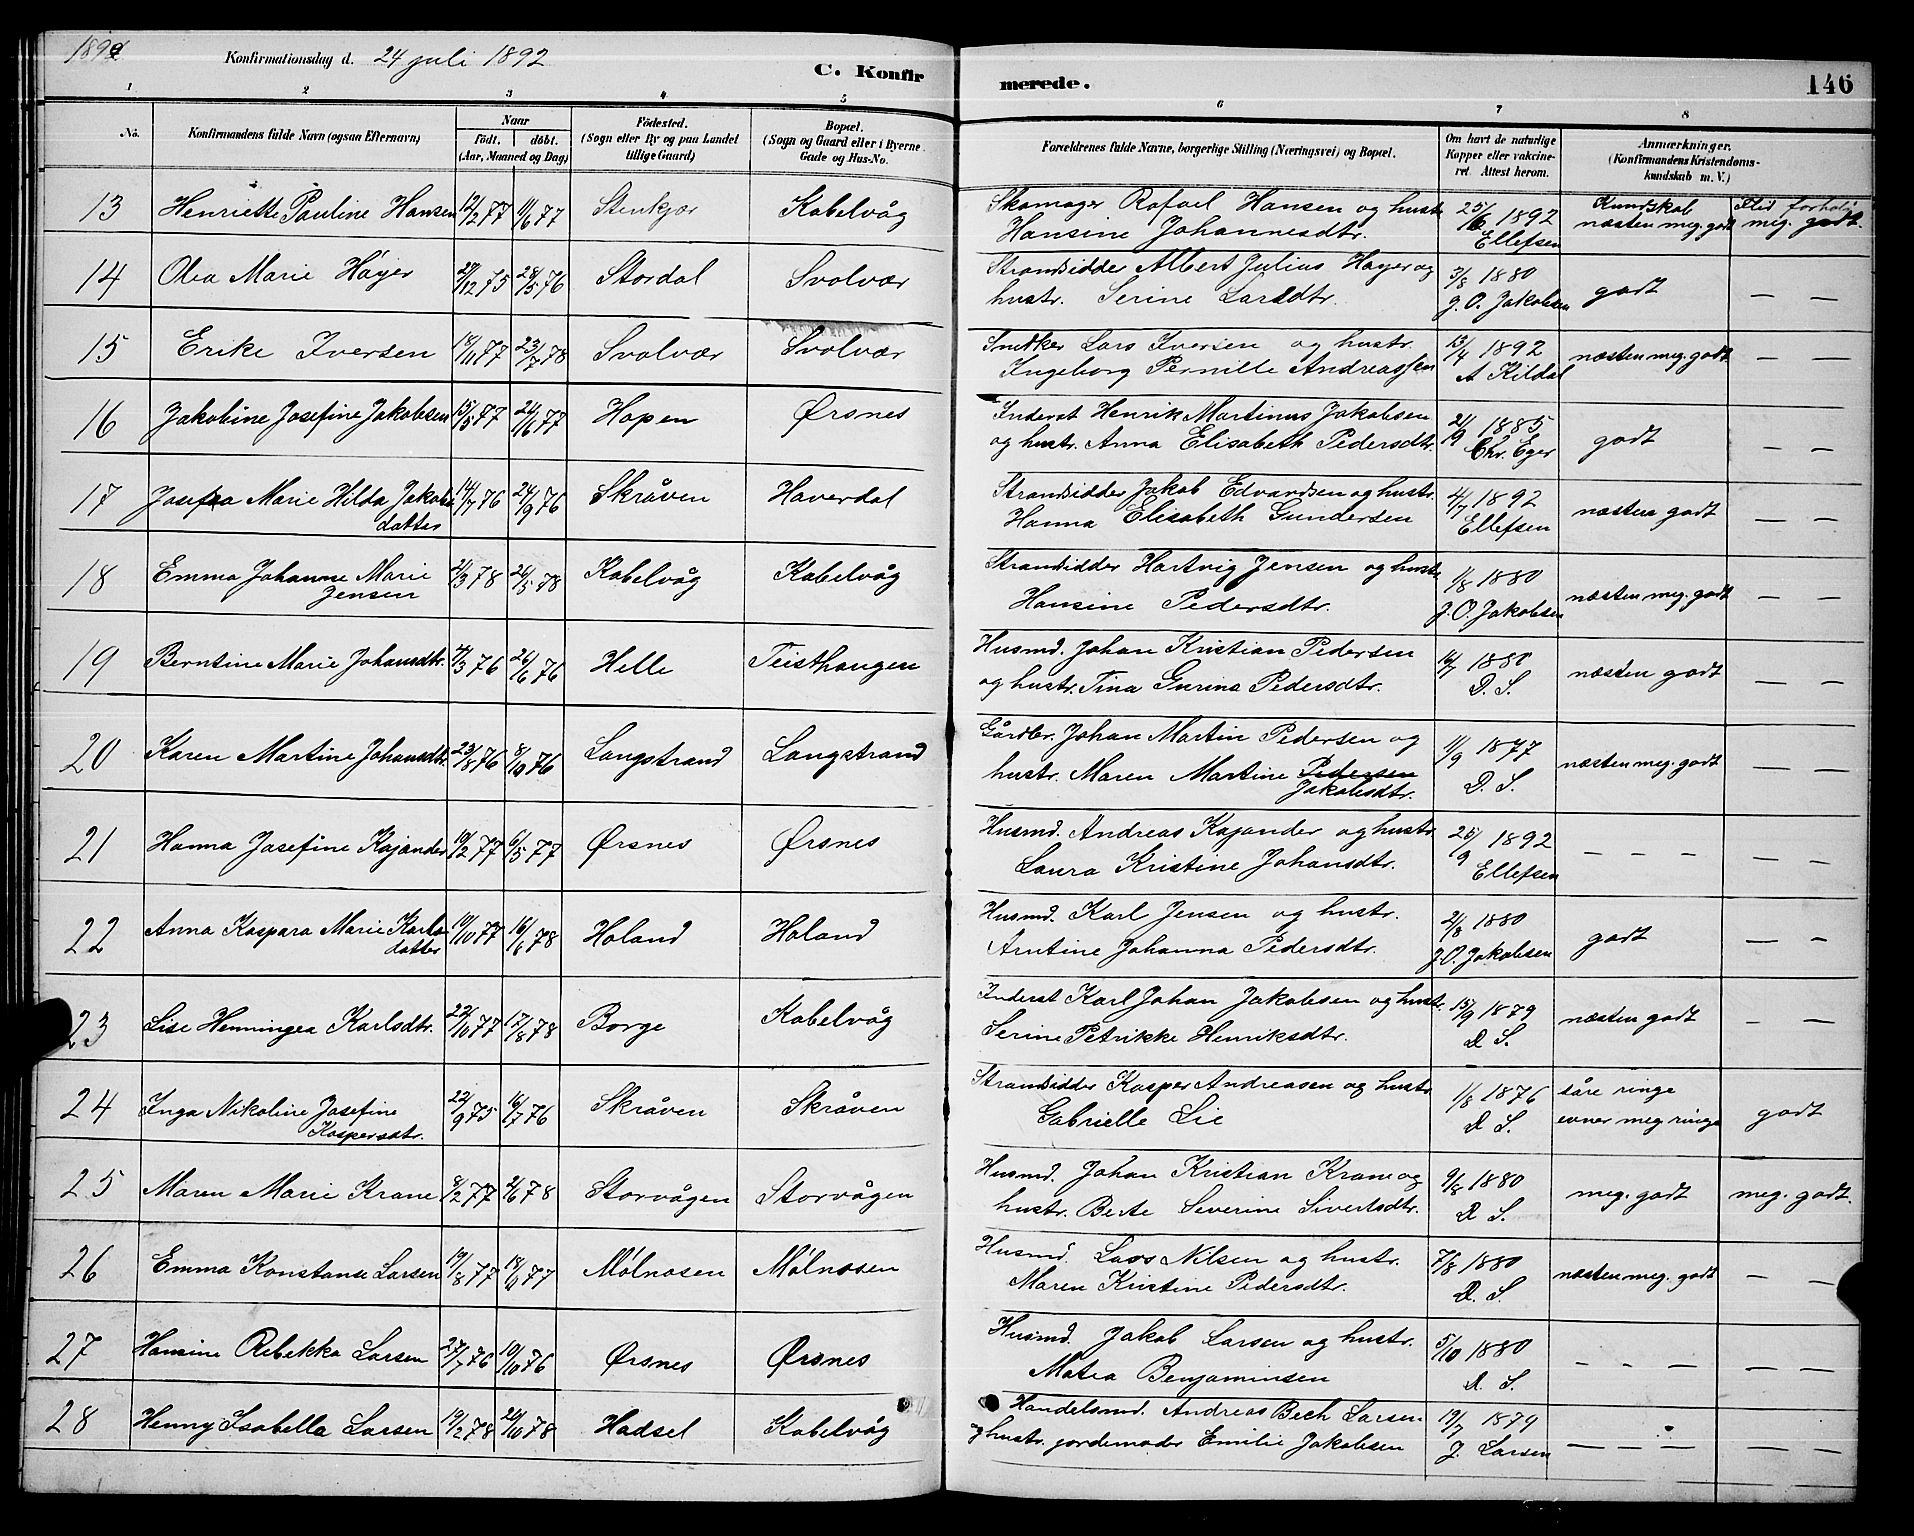 1892 Konfirmationsdag d. 24 juli 1892
C. Konfirmerede. 146
1 2 3 4 5 6 7 8
No. Konfirmandens fulde Navn (ogsaa Efternavn) Naar født. døbt. (Aar, Maaned og Dag) Fødested. (Sogn eller By og paa Landet tillige Gaard) Bopæl. (Sogn og Gaard eller i Byerne Gade og Hus-No. Forældrenes fulde Navne, borgerlige Stilling (Næringsvei) og Bopæl. Om havt de naturlige Kopper eller vakcineret. Attest herom. Anmærkninger. (Konfirmandens Kristendomskundskab m. V.)
Kundskab Flid forhold
13 Henriette Pauline Hansen 12/2 77 11/6 77 Stenkjær Kabelvåg Skomager Rafael Hansen og hustr. 25/6 1892 næsten meg. godt meg. godt.
Hansine Johannesdtr. Ellefsen
14 Olea Marie Høyer 27/12 75 28/5 76 Stordal Svolvær Strandsidder Albert Julius Høyer og 3/8 1880 godt — —
hustr. Serine Larsdtr. J. O. Jakobsen
15 Erike Iversen 18/11 77 23/7 78 Svolvær Svolvær Snedker Lars Iversen og hustr. 13/4 1892 næsten meg. godt — —
Ingeborg Pernille Andreassen A Kildal
16 Jakobine Josefine Jakobsen 15/5 77 24/6 77 Hopen Ørsnes Inderst Henrik Martinus Jakobsen 21/9 1885 godt — —
og hustr. Anna Elisabeth Pedersdtr. Chr. Eger
17 Josefa Marie Hilda Jakobs 14/7 76 24/9 76 Skråven Haverdal Strandsidder Jakob Edvardsen og hustr. 4/7 1892 næsten godt — —
datter Hanna Elisabeth Gundersen Ellefsen
18 Emma Johanne Marie 21/3 78 26/5 78 Kabelvåg Kabelvåg Strandsidder Hartvig Jensen og hustr. 1/8 1880 næsten meg. godt — —
Jensen Hansine Pedersdtr. J. O. Jakobsen
19 Berntine Marie Johansdtr. 4/3 76 26/6 76 Helle Teisthaugen Husmd. Johan Kristian Pedersen 16/7 1880 næsten godt — —
og hustr. Tina Gurina Pedersdtr. D. S.
20 Karen Martine Johansdtr. 23/8 76 8/10 76 Langstrand Langstrand Gårdbr. Johan Martin Pedersen og 11/9 1877 næsten meg. godt — —
hustr. Maren Martine Pedersen D. S.
Jakobsdtr.
21 Hanna Josefine Kajander 19/2 77 6/5 77 Ørsnes Ørsnes Husmd. Andreas Kajander og hustr. 25/9 1892 — — — — —
Laura Kristine Johansdtr. Ellefsen
22 Anna Kaspara Marie Karls 19/10 77 16/6 78 Holand Holand Husmd. Karl Jensen og hustr. 2/8 1880 godt — —
datter Arntine Johanna Pedersdtr. J. O. Jakobsen
23 Lise Henningea Karlsdtr. 22/10 77 17/8 78 Borge Kabelvåg Inderst Karl Johan Jakobsen og hustr. 15/9 1879 næsten godt — —
Serine Petrikke Henriksdtr. D. S.
24 Inga Nikoline Josefine 22/9 75 16/7 76 Skråven Skråven Strandsidder Kasper Andreasen og hustr. 1/8 1876 såre ringe godt
Kaspersdtr. Gabrielle Lie D. S. evner meg ringe
25 Maren Marie Krane 8/2 77 2/6 78 Storvågen Storvågen Husmd. Johan Kristian Krane og 9/8 1880 meg. godt meg. godt.
hustr. Berte Severine Sivertsdtr. D. S.
26 Emma Konstanse Larsen 19/8 77 18/11 77 Mølnosen Mølnosen Husmd. Lars Nilsen og hustr. 7/8 1880 næsten meg. godt — —
Maren Kristine Pedersdtr. D. S.
27 Hansine Rebekka Larsen 27/7 76 10/10 76 Ørsnes Ørsnes Husmd. Jakob Larsen og hustr. 5/10 1880 — — — — —
Matea Benjaminsen D. S.
28 Henny Isabella Larsen 19/2 78 20/10 78 Hadsel Kabelvåg Handelsmd. Andreas Bech Larsen 19/7 1879 — — — — —
og hustr. jordemoder Emilie Jakobsen J. Larsen